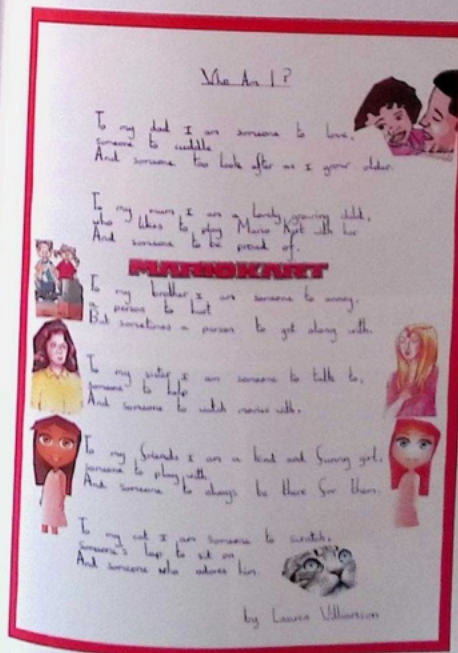 Who Am I?
To my dad I am someone to love,
someone to cuddle
And someone too look after as I grow older.
To my mum I am a lovely growing child,
who likes to play Mario Kart with her
And someone to be proud of.
MARIOKART
To my brother I am someone to annoy
a person to hurt
But sometimes a person to get along with.
To my sister I am someone to talk to,
someone to help
And someone to watch movies with.
To my friends I am a kind and funny girl,
someone to play with
And someone to always be there for them.
To my cat I am someone to scratch,
Someone's lap to sit on
And someone who adores him.
by Lauren Williamson